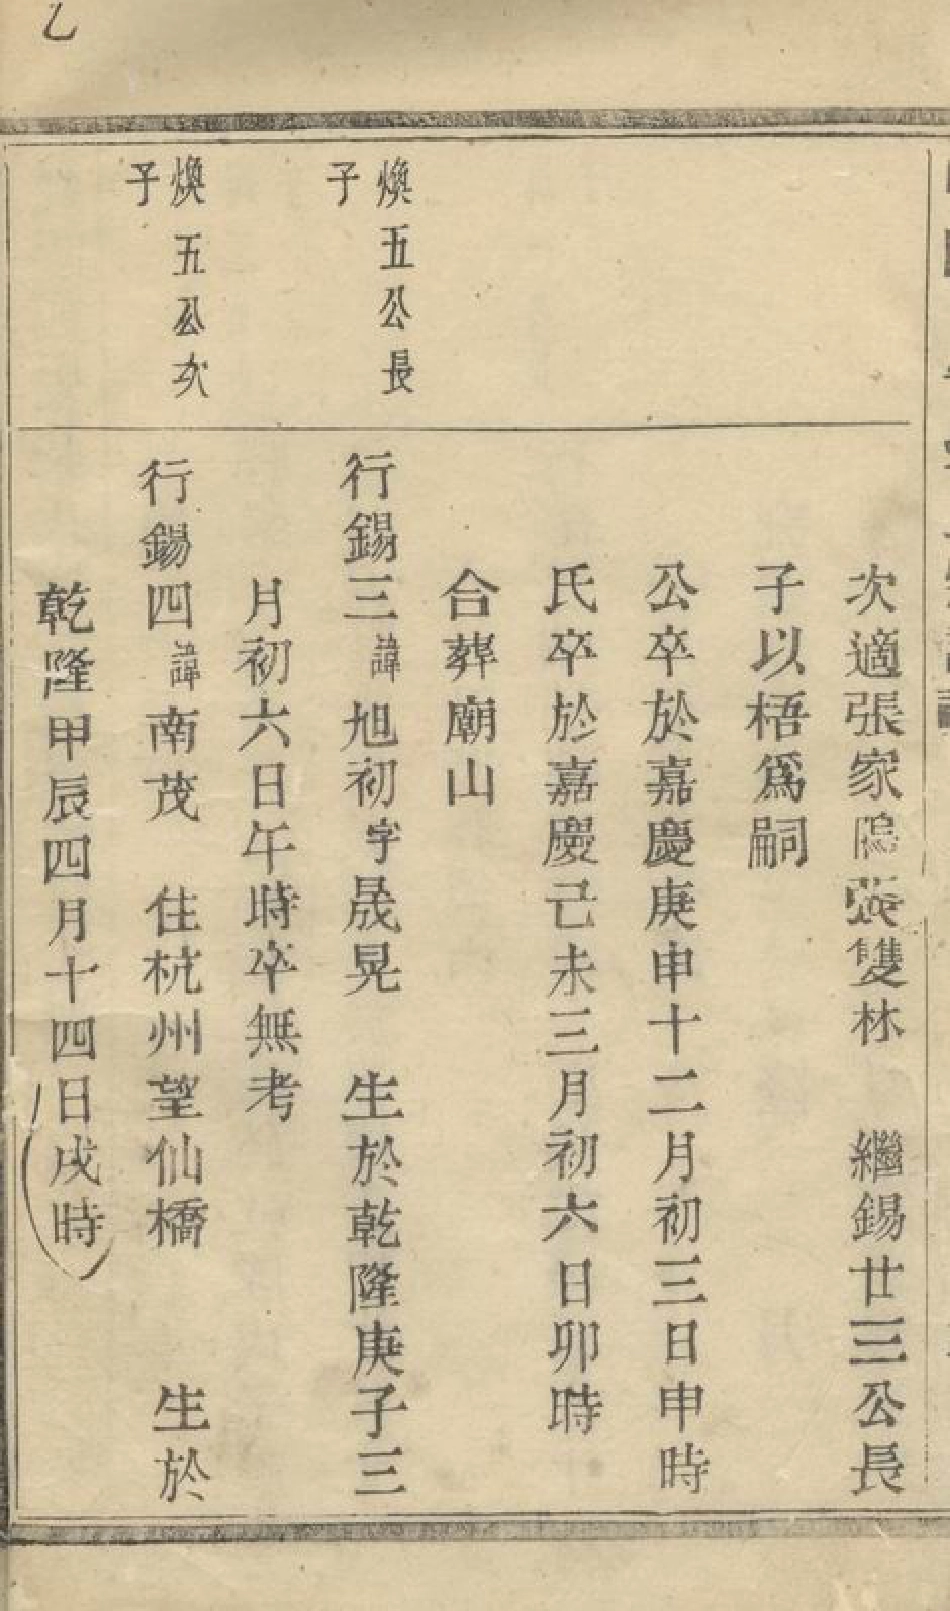 次適張家塢張雙林　繼錫廿三公長
子以梧爲嗣
公卒於嘉慶庚申十二月初三日申時
氏卒於嘉慶己未三月初六日卯時
合葬廟山
煥五公長
子
行錫三諱旭初字晟晃　生於乾隆庚子三
月初六日午時卒無考
煥五公次
子
行錫四諱南茂　住杭州望仙橋　生於
乾隆甲辰四月十四日戌時